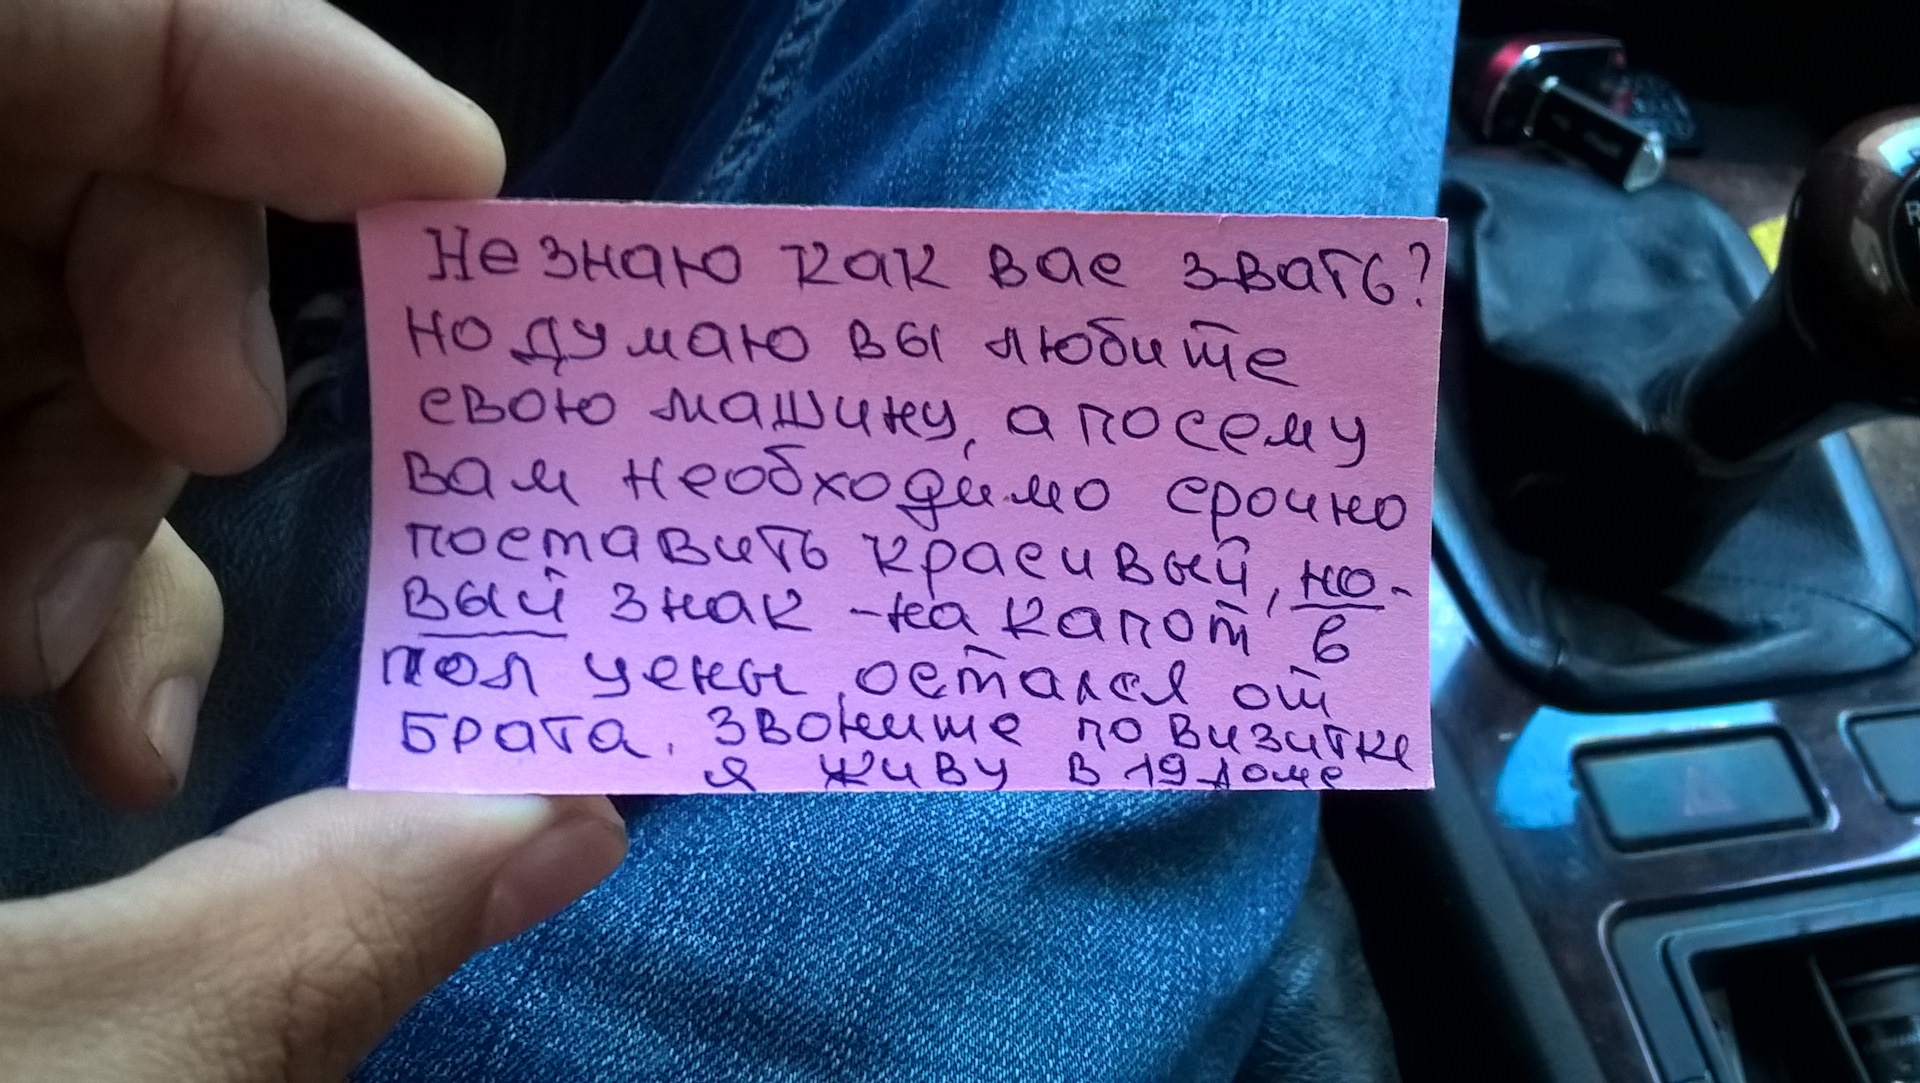 Не знаю как вас звать?
но думаю вы любите
свою машину, а посему
вам необходимо срочно
поставить красивый, но-
вый знак - на капот, в
пол цены, остался от
брата. Звоните по визитке
я живу в 19 доме
R